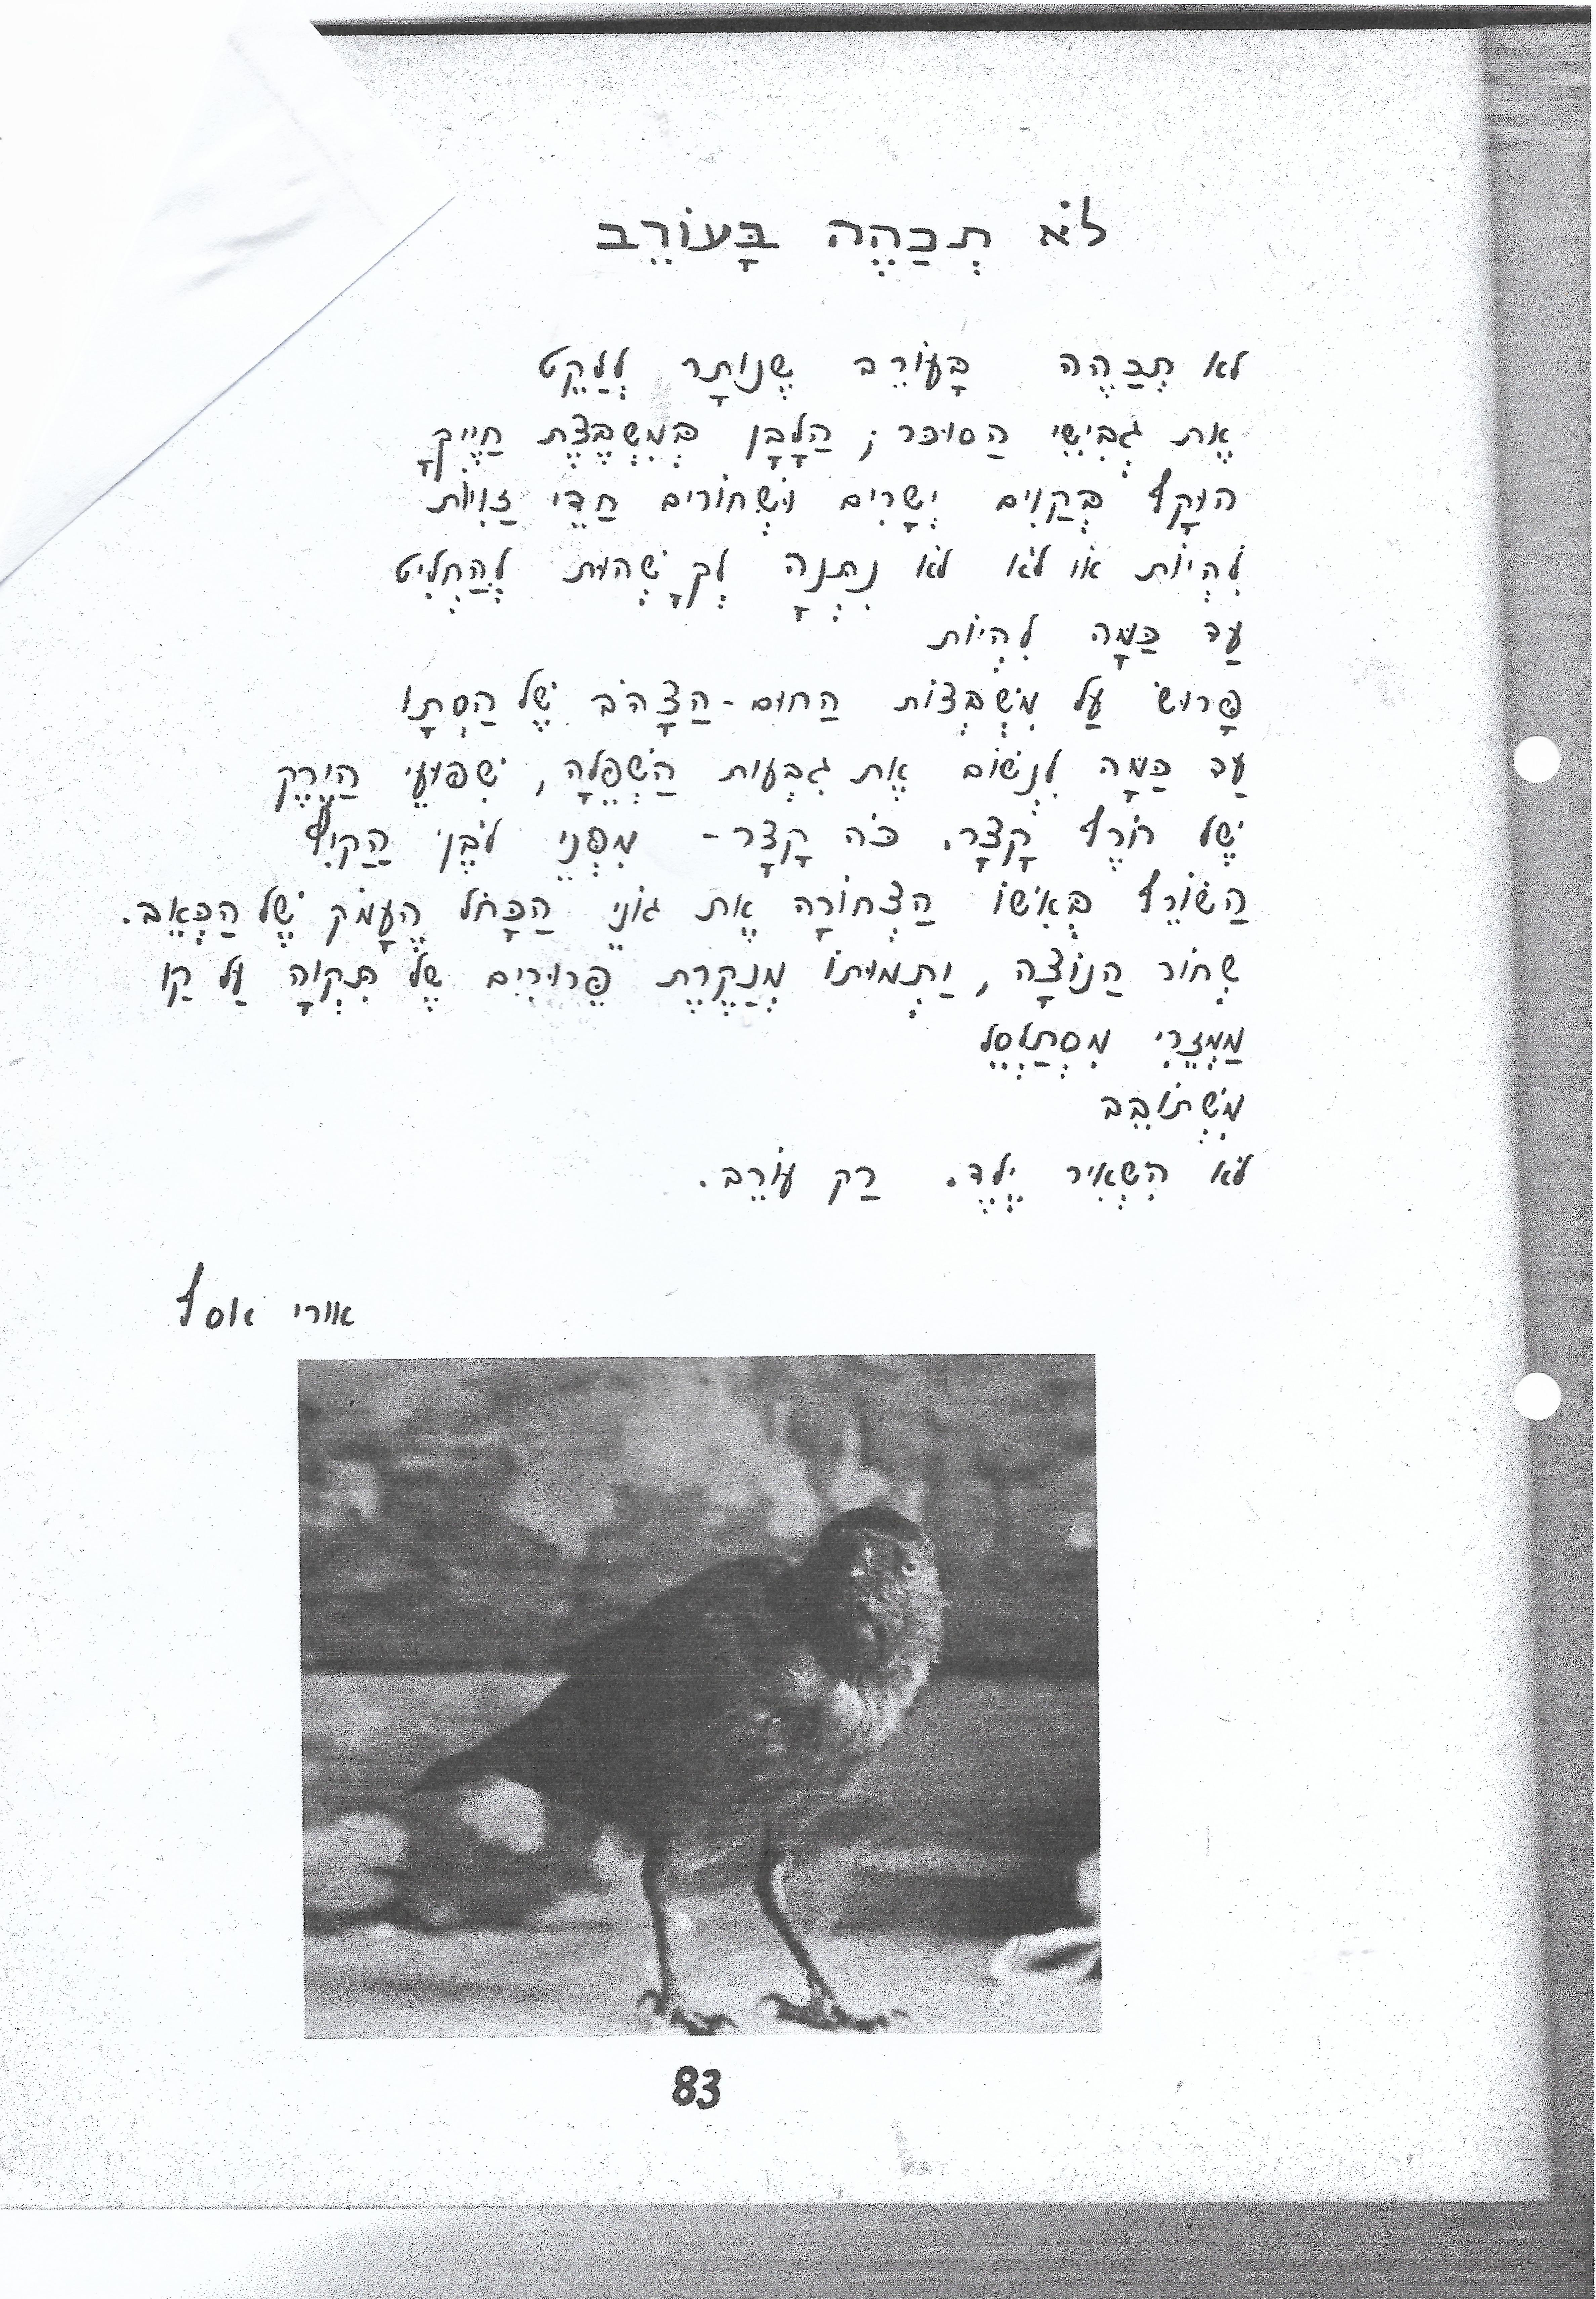 לֹא תִּכְהֶה בָּעוֹרֵב
לֹא תִּכְהֶה בָּעוֹרֵב שֶׁנּוֹתָר לְלַקֵּט
אֶת גְּבִישֵׁי הַסוּכּר; הַלָּבָן בְּמִשְׁבֶּצֶת חַיֶּיךָ
הוּקַף בְּקַוִּים יְשָׁרִים וּשְׁחוֹרִים חַדֵּי זָוִיּוֹת
לִהְיוֹת אוֹ לֹא לֹא נִתְּנָה לְךָ שְׁהוּת לְהַחְלִיט
עַד כַּמָּה לִהְיוֹת
פָּרוּשׂ עַל מִשְׁבְּצוֹת הַחוּם-הַצָּהֹב שֶׁל הַסְּתָו
עַד כַּמָּה לִנְשׁוֹם אֶת גִּבְעוֹת הַשְּׁפֵלָה, שִׁפּוּעֵי הַיֶּרֶק
שֶׁל חֹרֶף קָצָר. כֹּה קָצָר- מִפְּנֵי לֹבֶן הַקַּיִץ
הַשּׂוֹרֵף בְּאִשּׁוֹ הַצְּחוֹרָה אֶת גּוֹנֵי הַכָּחֹל הֶעָמֹק שֶׁל הַכְּאֵב.
שְׁחוֹר הַנּוֹצָה, יַתְמוּתוֹ מְנַקֶּרֶת פֵּרוּרִים שֶׁל תִּקְוָה עַל קַו
מַמְזֵרִי מִסְתַּלְסֵל
מִשְׁתּוֹבֵב
לֹא הִשְׁאִיר יֶלֶד. רַק עוֹרֵב.
אורי אסף
83